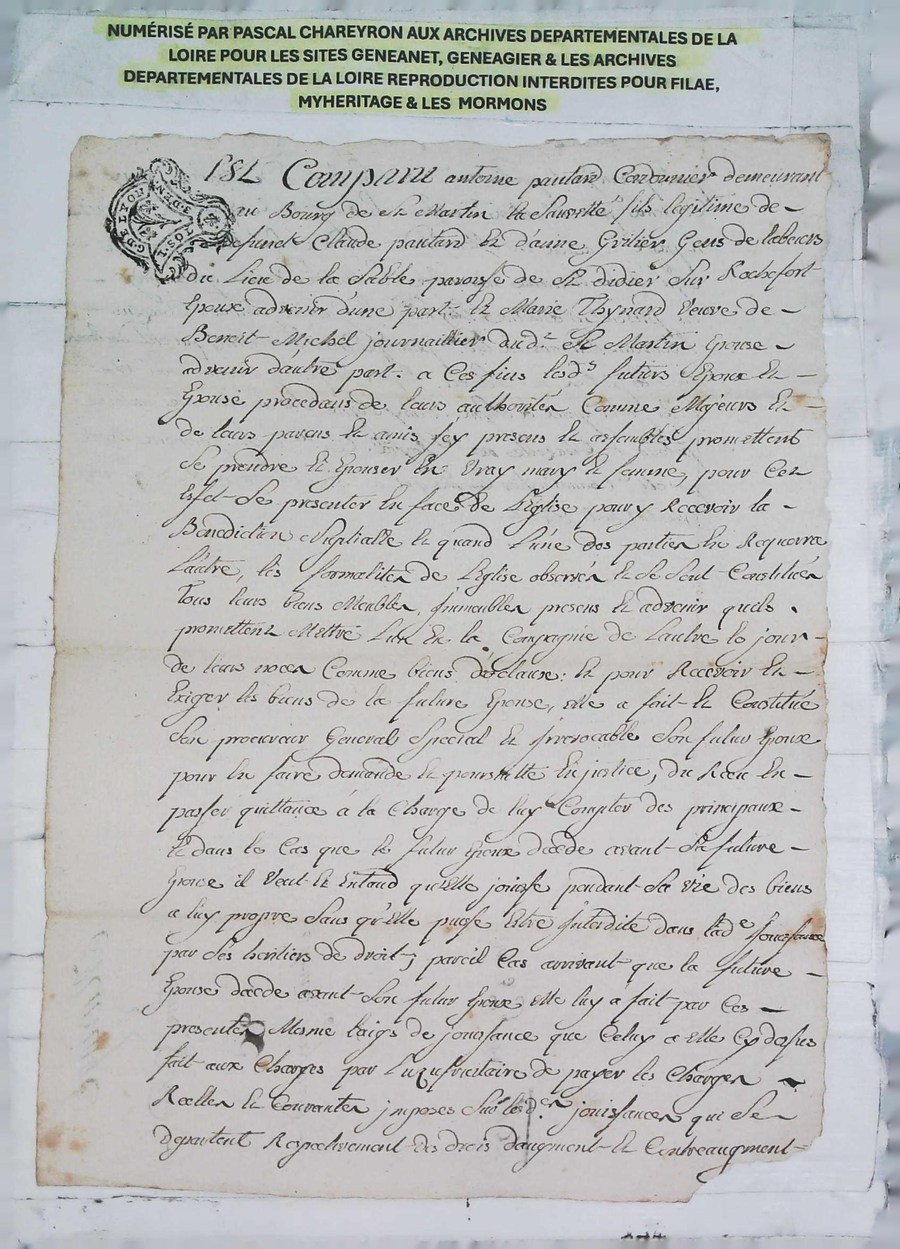 NUMÉRISÉ PAR PASCAL CHAREYRON AUX ARCHIVES DEPARTEMENTALES DE LA
LOIRE POUR LES SITES GENEANET, GENEAGIER & LES ARCHIVES
DEPARTEMENTALES DE LA LOIRE REPRODUCTION INTERDITES POUR FILAE,
MYHERITAGE & LES MORMONS
Est Comparu antoine pautard Cordonnier demeurant
au Bourg de St Martin la Sauveté fils legitime de
defunct Claude pautard et d'anne Gritier Gens de labeurs
du Lieu de la Sable paroisse de St didier Sur Rochefort
Epoux advenir d'une part. et Marie Thynard veuve de
Benoit Michel journaillier dud.t St Martin Epouse
advenir d'autre part. a Ces fins lesd.s futurs Epoux et
Epouse procedans de leurs authorités Comme Majeurs et
de leurs parens et amis jcy presens et assemblés promettent
se prendre et Epouser en vray mary et femme, pour Cet
Effet Se presenter en face de L'Eglise pour y Recevoir la
Benediction Nuptialle et quand L'une des parties en Requerra
L'autre, les formalites de L'Eglise observés et Se Sont Constitués
Tous leurs biens Meubles, jmmeubles presens et advenir quils
promettent Mettre L'un en la Compagnie de Lautre le jour
de leurs noces Comme biens declaux: et pour Recevoir et
Exiger les biens de la future Epouse, elle a fait et Constitué
Son procureur General Special et jrrevocable Son futur Epoux
pour en faire demande et poursuitte en justice, du Receu en
passer quittance à la Charge de luy Compter des principaux
et dans le Cas que le futur Epoux decede avant Sa future
Epouse il Veut et Entend qu'Elle jouisse pendant Sa vie des biens
a luy propre Sans qu'elle puisse Estre jnterdite dans lad.e jouissance
par Ses heritiers de droit; pareil Cas arrivant que la future
Epouse decede avant Son futur Epoux elle luy a fait par Ces
presentes Mesme laigs de jouissance que Celuy a elle Cy dessus
fait aux Charges par L'uzufruitaire de payer les Charges
Reelles et Courantes jmposes Sur lesd.es jouissances qui Se
departent Respectivement des droits daugment et Contreaugment